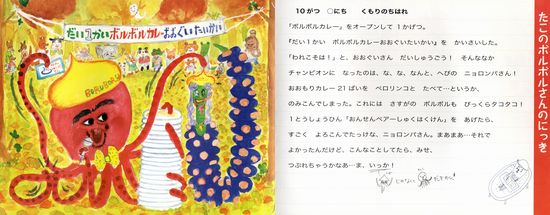 だい1かいボルボルカレーおおぐいたいかい
BORUBORU
10がつ　〇にち　　くもりのちはれ
「ボルボルカレー」をオープンして1かげつ。
「だい1かい　ボルボルカレーおおぐいたいかい」を　かいさいした。
「われこそは！」と、おおぐいさん　だいしゅうごう！　そんななか
チャンピオンに　なったのは　な、な、なんと、へびの　ニョロンパさん！
おおもりカレー21ぱいを　ペロリンコと　たべて…というか、
のみこんでしまった。これには　さすがの　ボルボルも　びっくらタコタコ！
1とうしょうひん「おんせんペアーしゅくはくけん」を　あげたら、
すごく　よろこんでたっけな、ニョロンパさん。まあまあ…それで
よかったんだけど、こんなことしてたら、みせ、
つぶれちゃうかなあ…ま、いっか！
じゃなくて
たこのボルボルさんのにっき